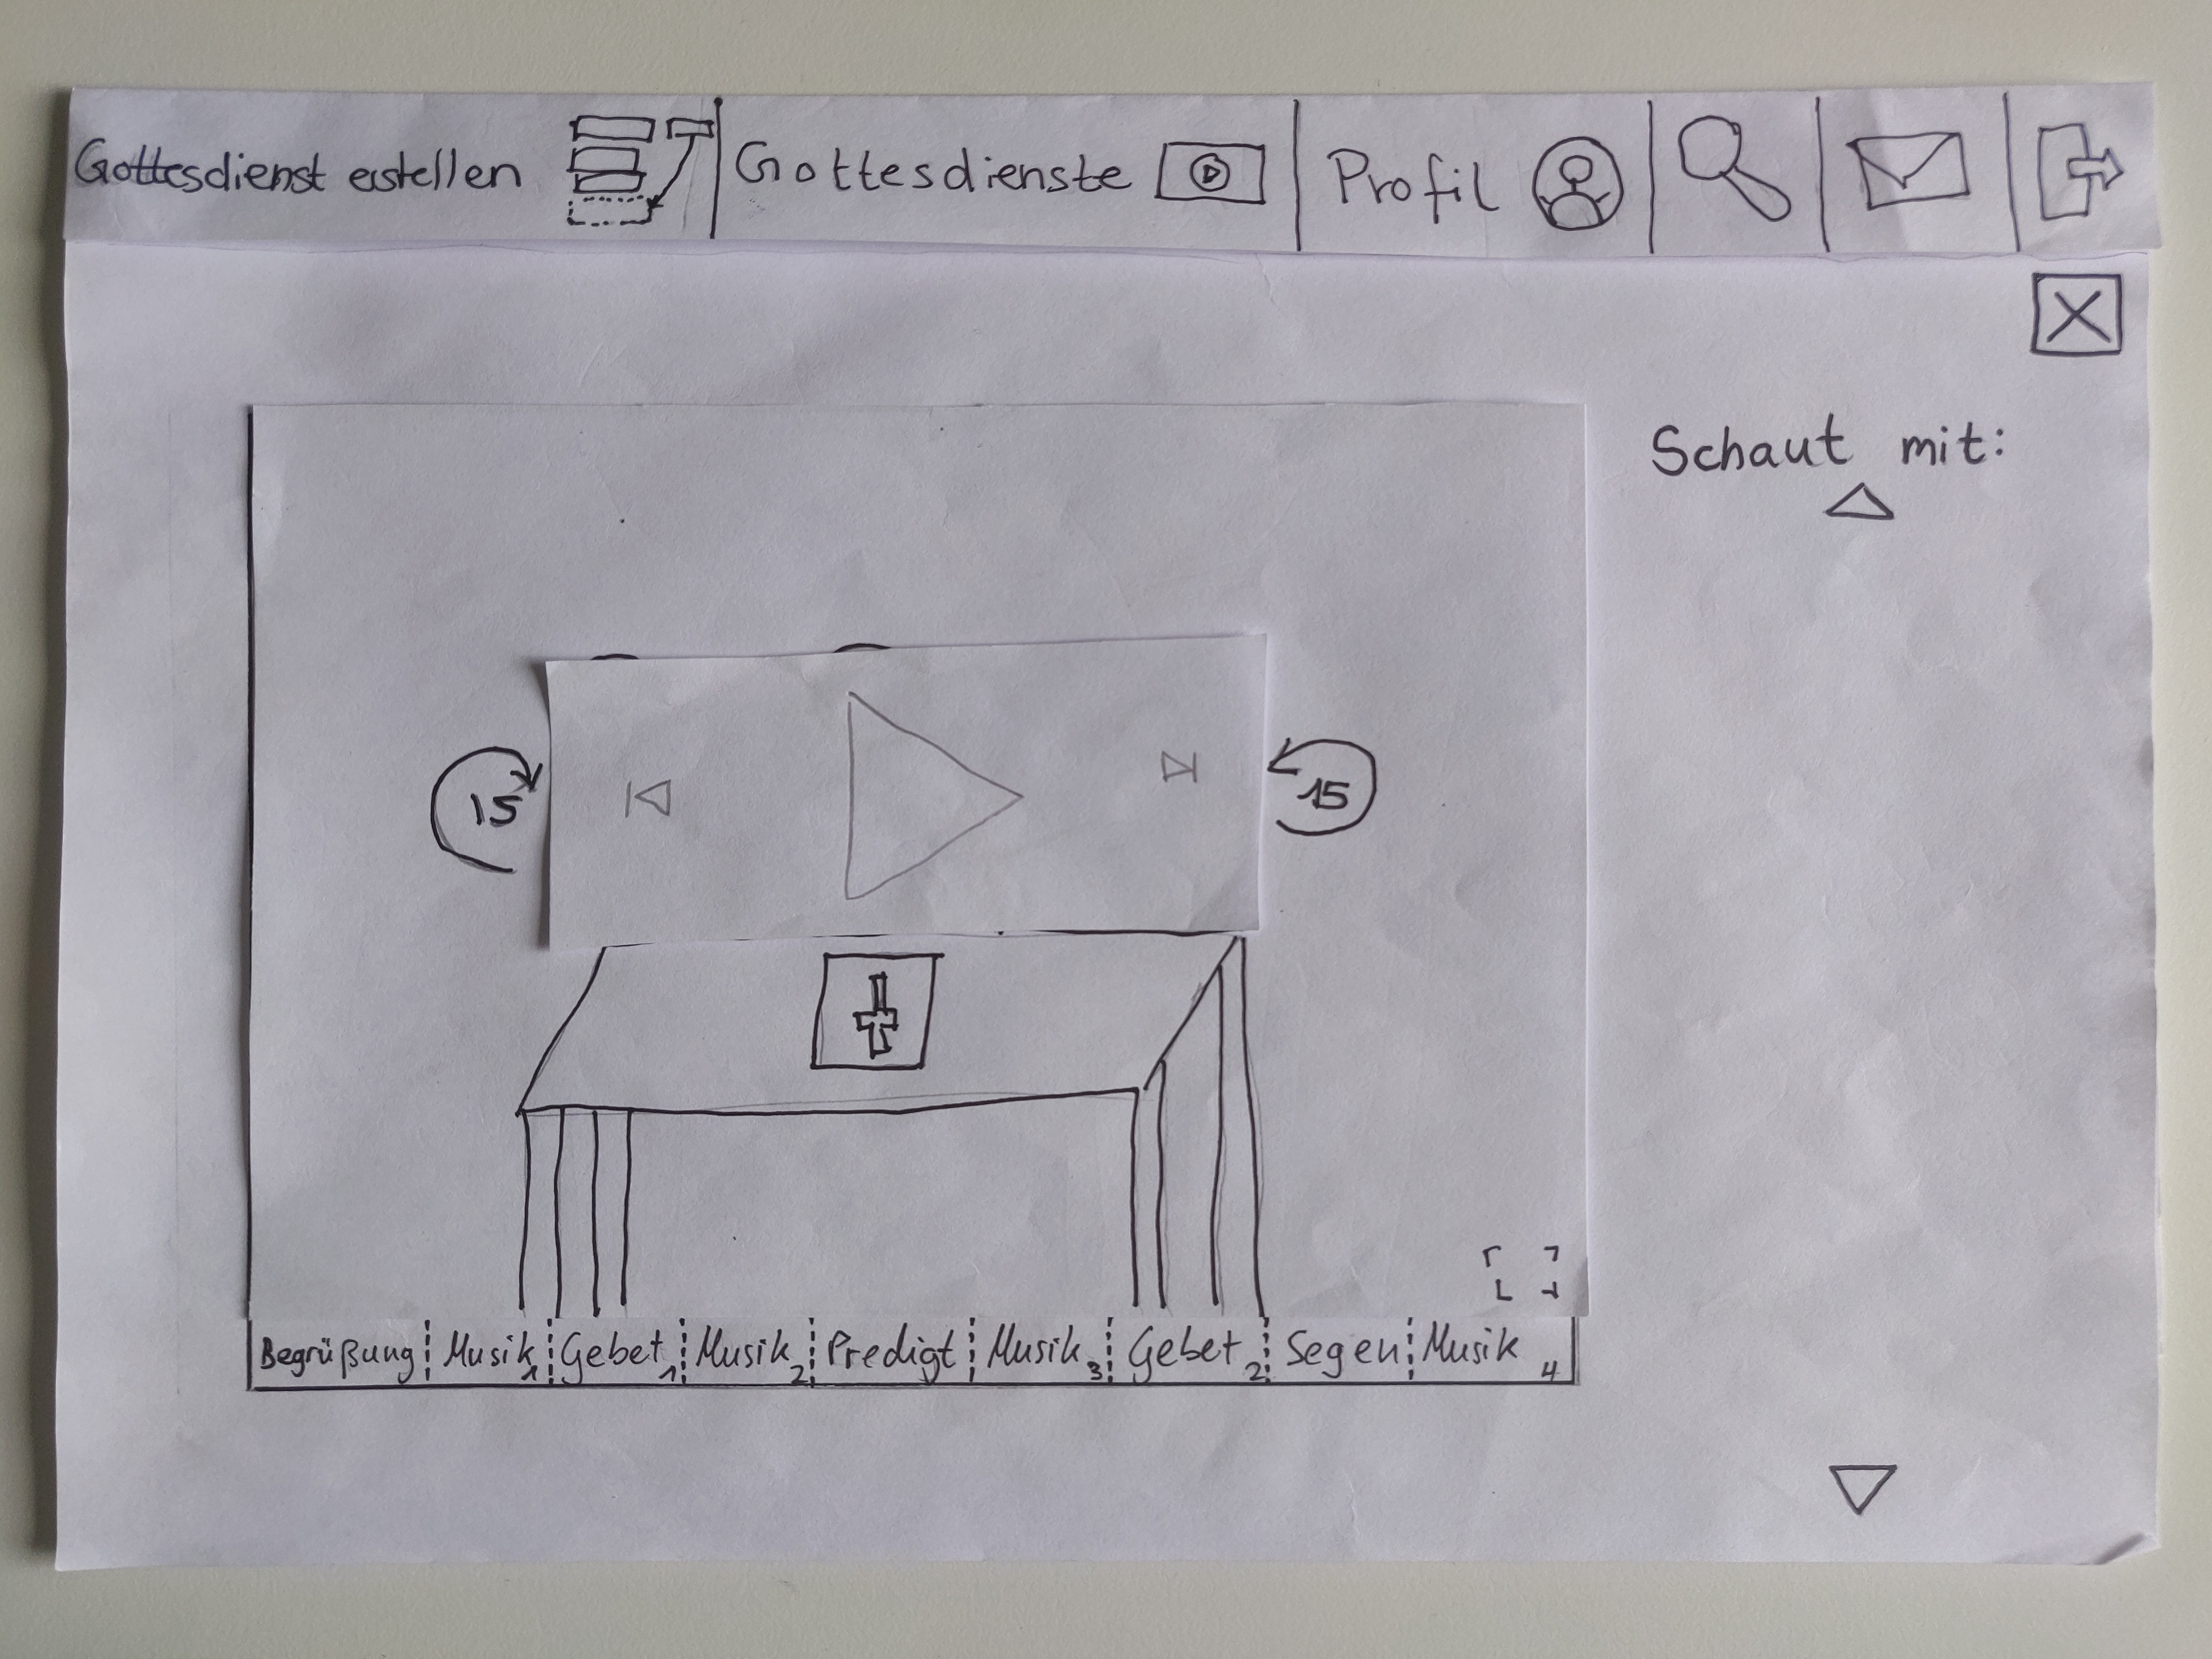 Gottesdienst erstellen
Gottesdienste
Profil
Schaut mit:
15
15
Begrüßung
Musik 1
Gebet 1
Musik 2
Predigt
Musik 3
Gebet 2
Segen
Musik 4